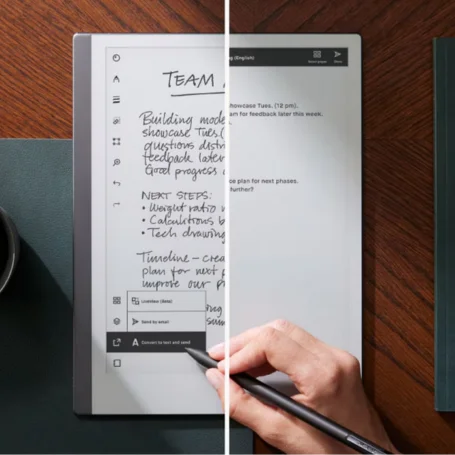 TEAM
Building mode
showcase Tues.(
questions distri
feedback later
Good progress
NEXT STEPS:
• Weight ratio
• Calculations b
• Tech drawing
Timeline – crea
plan for next p
improve our p
LiveView (Beta)
Send by email
Convert to text and send
(English)
howcase Tues. (12 pm).
am for feedback later this week.
ce plan for next phases.
further?